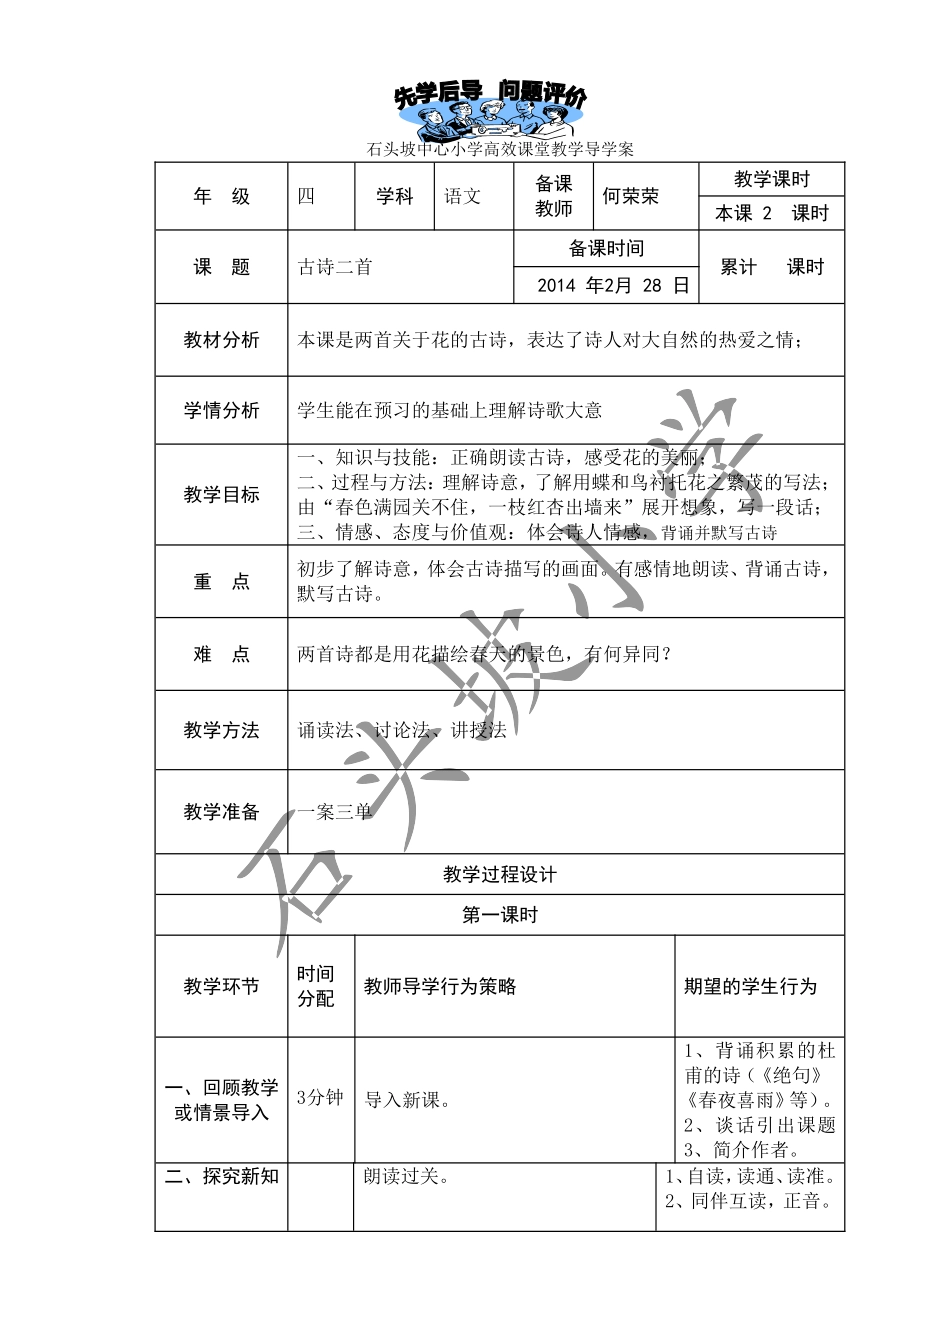 先学后导 问题评价
石头坡中心小学高效课堂教学导学案
年 级 四 学科 语文 备课教师 何荣荣 教学课时
本课 2 课时
课 题 古诗二首 备课时间 累计 课时
2014 年2月 28 日
教材分析 本课是两首关于花的古诗，表达了诗人对大自然的热爱之情；
学情分析 学生能在预习的基础上理解诗歌大意
教学目标
一、知识与技能：正确朗读古诗，感受花的美丽；
二、过程与方法：理解诗意，了解用蝶和鸟衬托花之繁茂的写法；
由“春色满园关不住，一枝红杏出墙来”展开想象，写一段话；
三、情感、态度与价值观：体会诗人情感，背诵并默写古诗
重 点
初步了解诗意，体会古诗描写的画面。有感情地朗读、背诵古诗，
默写古诗。
难 点 两首诗都是用花描绘春天的景色，有何异同？
教学方法 诵读法、讨论法、讲授法
教学准备 一案三单
教学过程设计
第一课时
教学环节 时间分配 教师导学行为策略 期望的学生行为
一、回顾教学
或情景导入
3分钟 导入新课。
1、背诵积累的杜
甫的诗（《绝句》
《春夜喜雨》等）。
2、谈话引出课题
3、简介作者。
二、探究新知 朗读过关。 1、自读，读通、读准。
2、同伴互读，正音。
石头坡小学